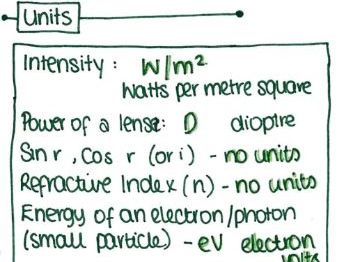 Units
Intensity : W/m²
Watts per metre square
Power of a lense: D dioptre
Sin r , Cos r (or i) - no units
Refractive Index (n) - no units
Energy of an electron/photon
(small particle) - eV electron
volts